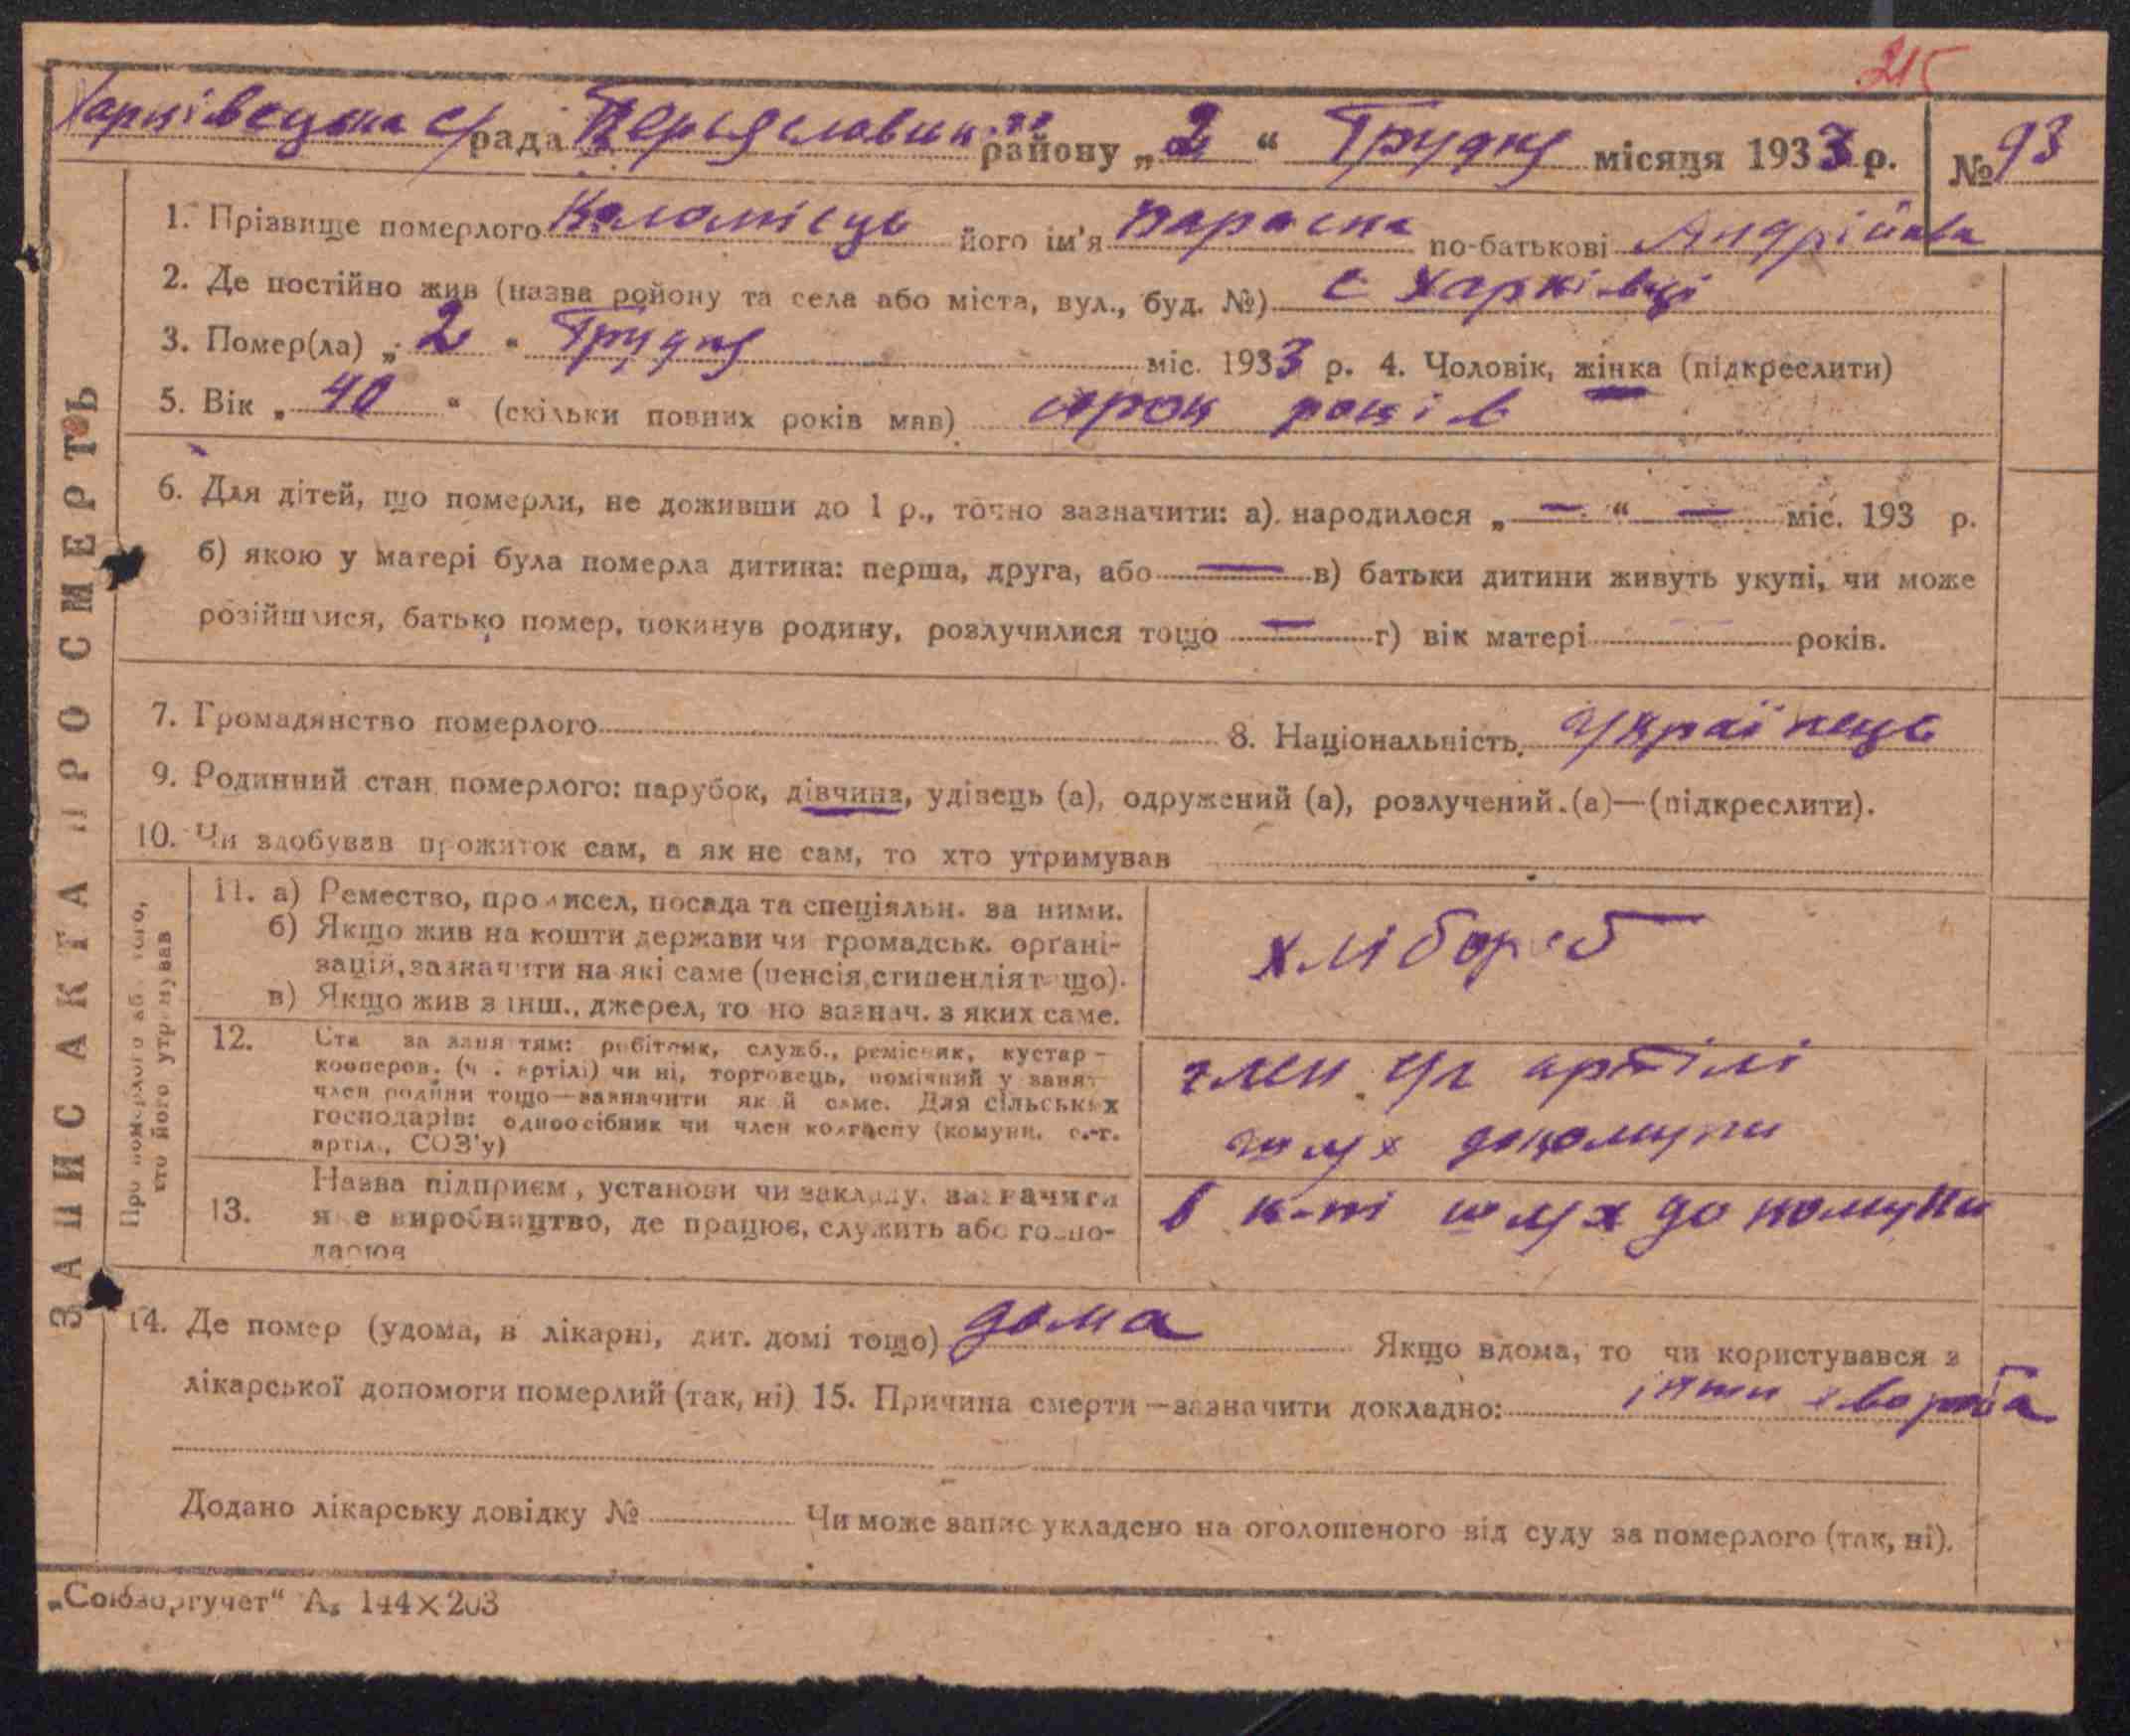 215
Харківецька с/рада Переяславськ. району „2“ Грудня місяця 1933 р. № 93
1. Прізвище померлого Коломієць його ім'я Параска по-батькові Андріївна
2. Де постійно жив (назва ройону та села або міста, вул., буд. №) с Харківці
3. Помер(ла) „2“ Грудня міс. 1933 р. 4. Чоловік, жінка (підкреслити)
5. Вік „40“ (скільки повних років мав) сорок років
6. Для дітей, що померли, не доживши до 1 р., точно зазначити: а) народилося „—“ — міс. 193 р.
б) якою у матері була померла дитина: перша, друга, або — в) батьки дитини живуть укупі, чи може
розійшлися, батько помер, покинув родину, розлучилися тощо — г) вік матері років.
7. Громадянство померлого 8. Національність українець
9. Родинний стан померлого: парубок, дівчина, удівець (а), одружений (а), розлучений (а)—(підкреслити).
10. Чи здобував прожиток сам, а як не сам, то хто утримував
ЗАПИС АКТА ПРО СМЕРТЬ
Про померлого або того,
хто його утримував
11. а) Ремество, промисел, посада та спеціяльн. за ними.
б) Якщо жив на кошти держави чи громадськ. орґані-
зацій, зазначити на які саме (пенсія, стипендія тощо).
в) Якщо жив з інш., джерел, то но зазнач. з яких саме.
хлібороб
12. Ста за заняттям: робітник, служб., ремісник, кустар-
кооперов. (ч. артілі) чи ні, торговець, помічний у занят
член родини тощо—зазначити який саме. Для сільських
господарів: одноосібник чи член колгоспу (комуни, с.-г.
артіл., СОЗ'у)
член с/г артілі
шлях докомуни
13. Назва підприєм, установи чи закладу, зазначити
яке виробництво, де працює, служить або госпо-
дарює
в к-ті шлях до комуни
14. Де помер (удома, в лікарні, дит. домі тощо) дома Якщо вдома, то чи користувався з
лікарської допомоги померлий (так, ні) 15. Причина смерти—зазначити докладно:
Додано лікарську довідку № Чи може запис укладено на оголошеного від суду за померлого (так, ні).
„Союзоргучет“ А₅ 144×203